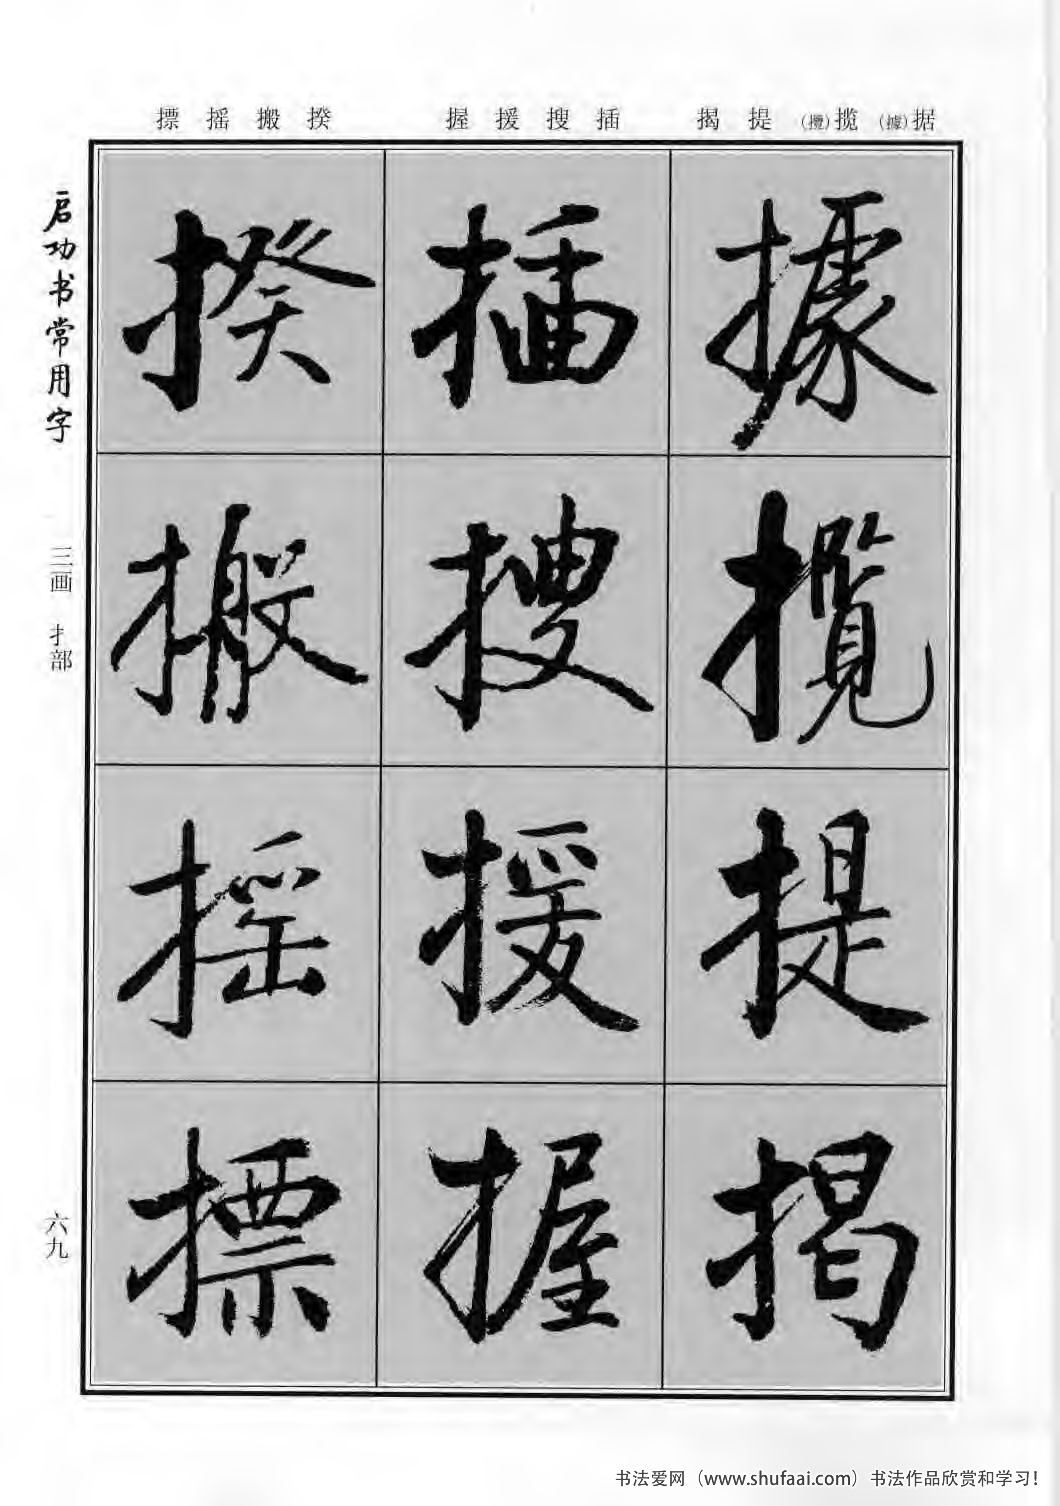 据(據) 揽(攬) 提 揭
插 搜 援 握
揆 搬 摇 摽
據 攬 提 揭
插 搜 援 握
揆 搬 摇 摽
启功书常用字
三画 扌部
六九
书法爱网（www.shufaai.com）书法作品欣赏和学习！